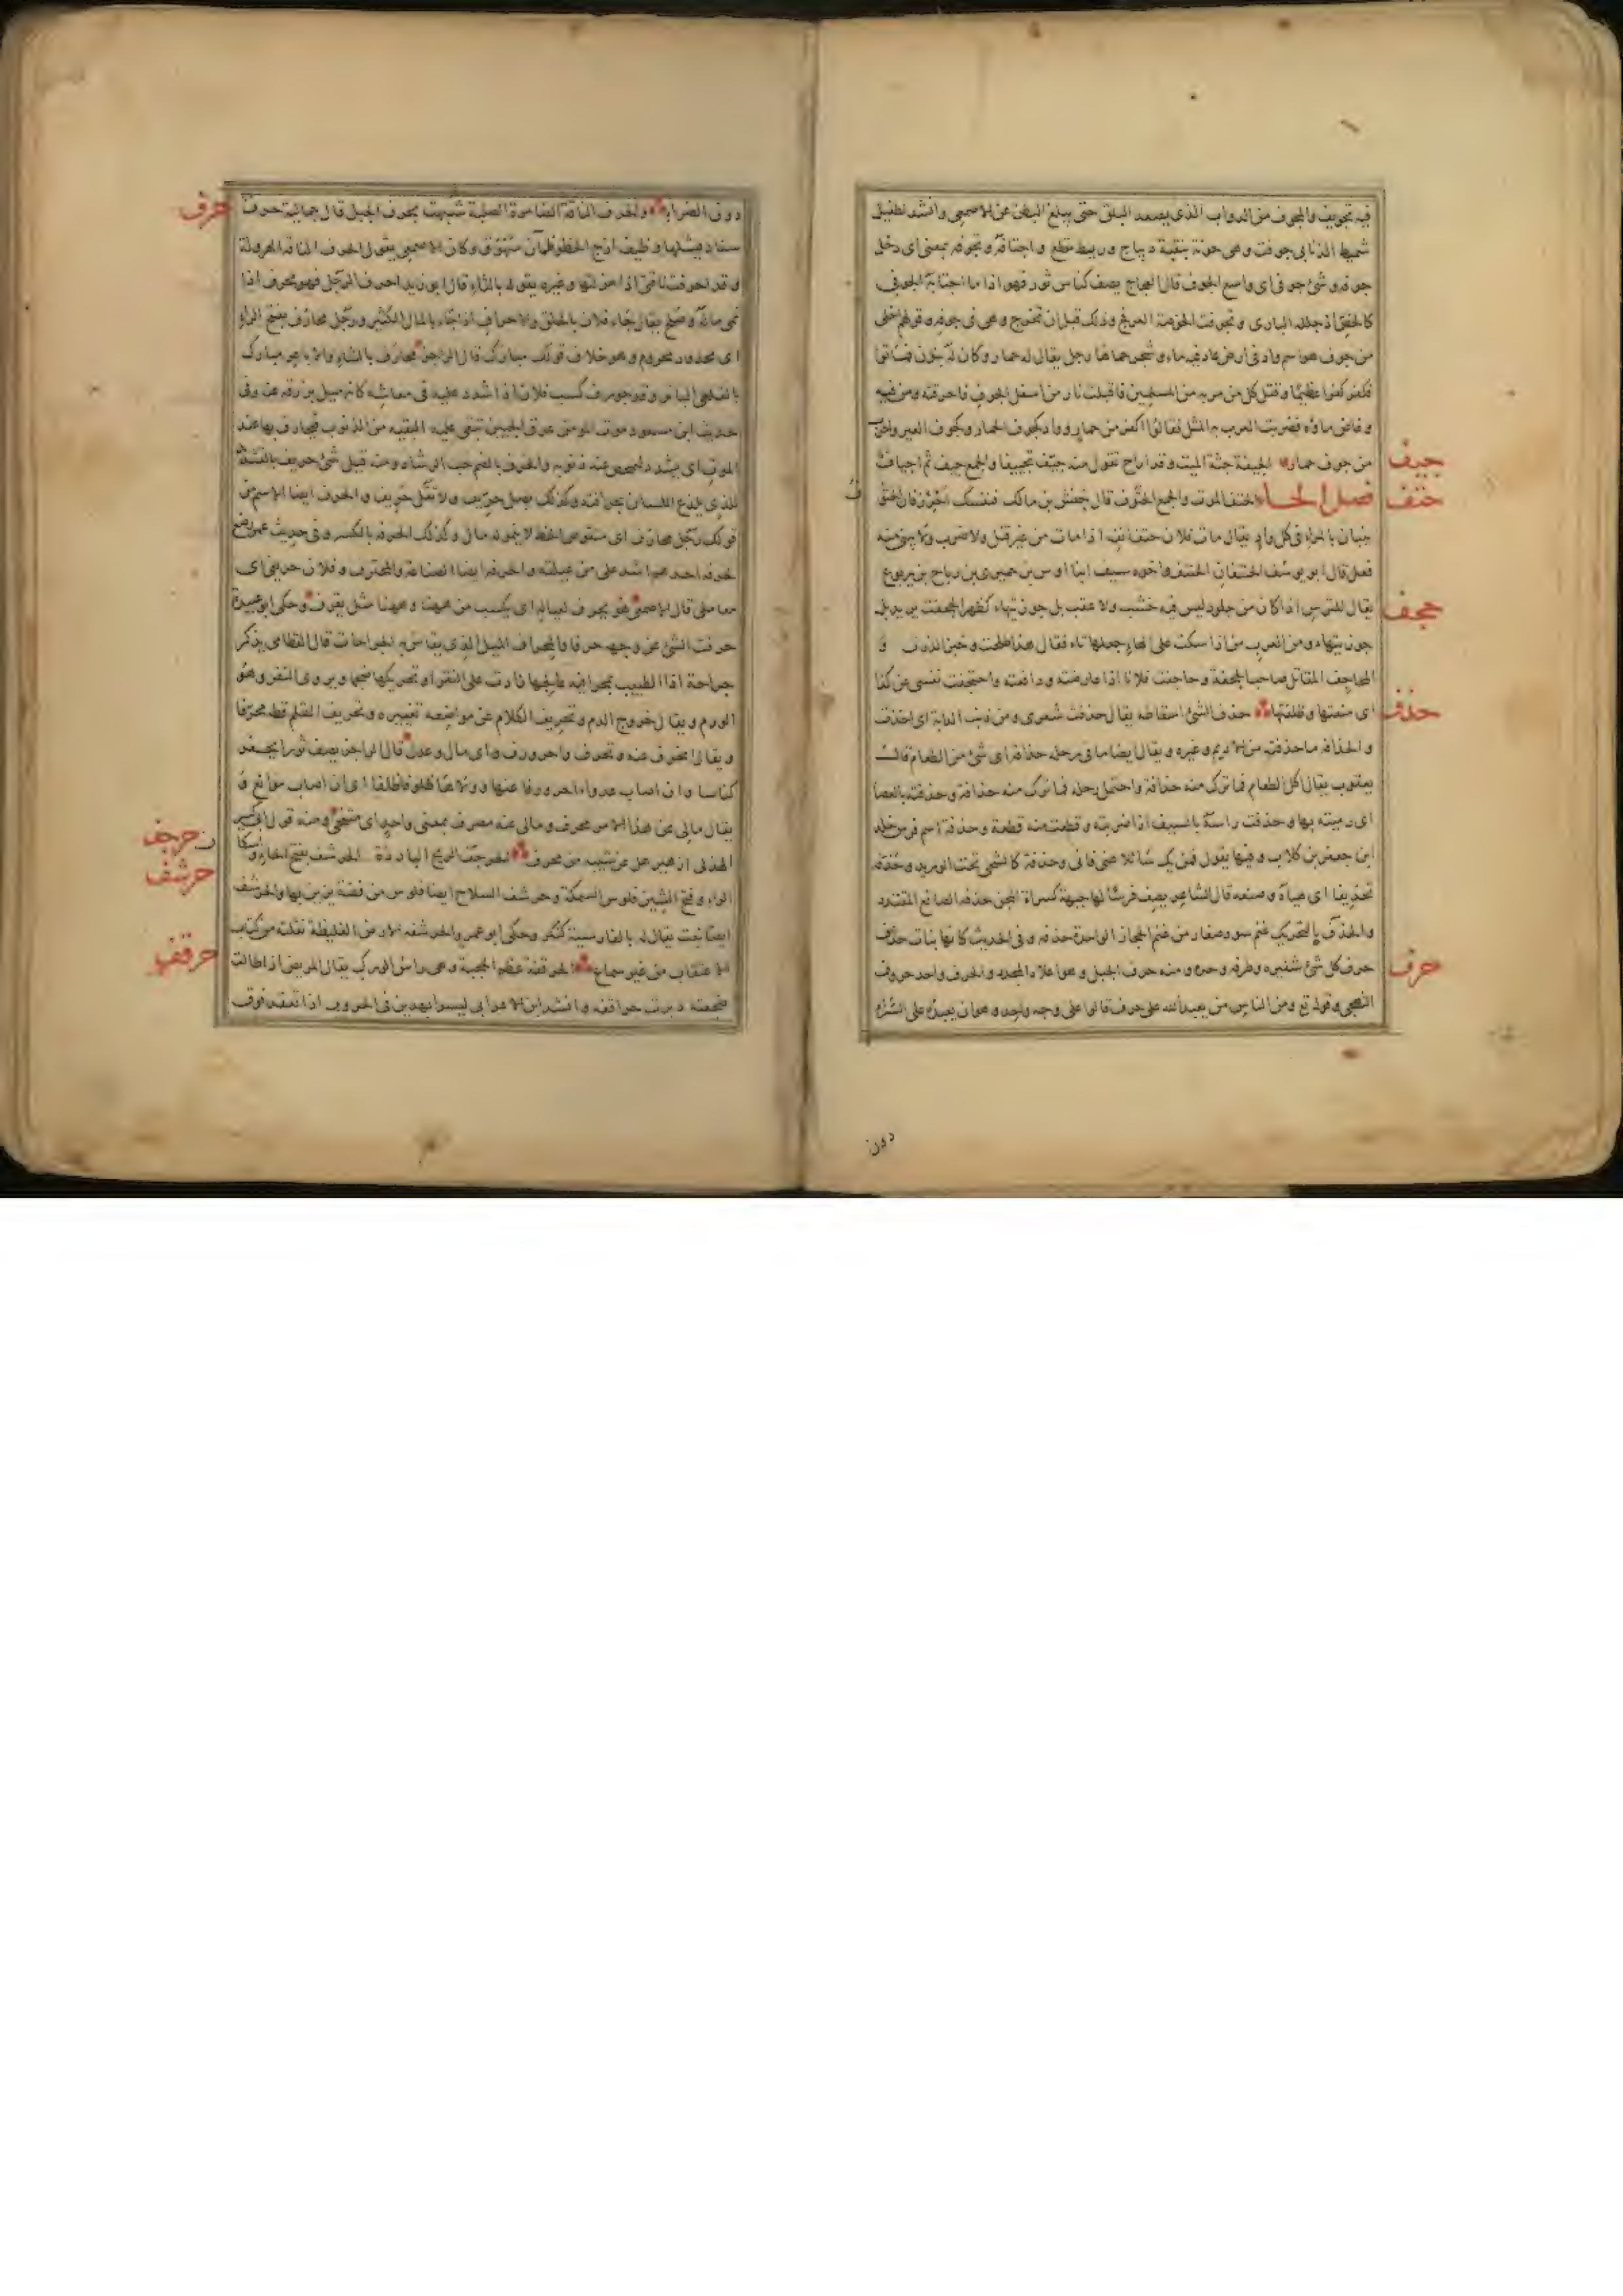 فيه تجويف والمجوف من الدواب الذي يصعد البلق حتى يبلغ البطن عن الاصمعي وانشد لطفيل
شميط الذنابى جوفت وهي جونة بنقبة ديباج وريط مقطع واجتافه وتجوفه بمعنى اى دخل
جوفه وشئ جوفى اى واسع الجوف قال العجاج يصف كناس ثور فهو اذا ما اجتابه الجوفى
كالخص اذ جلله البارى وتجوفت الخوصة العرفج وذلك قبل ان تخرج وهى فى جوفه وقولهم اخلى
من جوف هو اسم واد فى ارض عاد فيه ماء وشجر حماها رجل يقال له حمار وكان له بنون فماتوا
فكفر كفرا عظيما وقتل كل من مر به من المسلمين فاقبلت نار من اسفل الجوف فاحرقته ومن فيه
وغاض ماؤه فضربت العرب به المثل فقالوا اكفر من حمار وواد كجوف الحمار وكجوف العير واخرب
جيف
من جوف حمار الجيفة جثة الميت وقد اراح تقول منه جيف تجييفا والجمع جيف ثم اجياف
حتف
فصل الحاء الحتف الموت والجمع الحتوف قال حنش بن مالك فنفسك احرز فان الحتوف
ينبأن بالمرء فى كل واد يقال مات فلان حتف انفه اذا مات من غير قتل ولا ضرب ولا يبنى منه
فعل قال ابو يوسف الحنتفان الحنتف واخوه سيف ابنا اوس بن حميرى بن رياح بن يربوع
حجف
يقال للترس اذا كان من جلود ليس فيه خشب ولا عقب بل جوزتيهاء كظهر الحجفت يريد بل
جوز تيهاء ومن العرب من اذا سكت على الهاء جعلها تاء فقال هذا طلحت وخبز الذرت و
المحاجف المقاتل صاحب الحجفة وحاجفت فلانا اذا عارضته ودافعته واحتجفت نفسى عن كذا
حذف
اى منعتها وظلفتها حذف الشئ اسقاطه يقال حذفت شعرى ومن ذنب الدابة اى اخذت
والحذافة ما حذفته من الاديم وغيره ويقال ايضا ما فى رحله حذافة اى شئ من الطعام قال
يعقوب يقال اكل الطعام فما ترك منه حذافة واحتمل رحله فما ترك منه حذافة وحذفته بالعصا
اى رميته بها وحذفت راسه بالسيف اذا ضربته وقطعت منه قطعة وحذفة اسم فرس خالد
ابن جعفر بن كلاب وفيها يقول فمن يك سائلا عنى فانى وحذفة كالشجى تحت الوريد وحذفه
تحذيفا اى هيأه وصنعه قال الشاعر يصف فرسا لها جبهة كسراة المجن حذفه الصانع المقتدر
والحذف بالتحريك غنم سود صغار من غنم الحجاز الواحدة حذفه وفى الحديث كانها بنات حذف
حرف
حرف كل شئ شفيره وطرفه وحده ومنه حرف الجبل وهو اعلاه المحدد والحرف واحد حروف
التهجى وقوله تع ومن الناس من يعبد الله على حرف قالوا على وجه واحد وهو ان يعبده على السراء
دون
حرف
دون الضراء والحرف الناقة الضامرة الصلبة شبهت بحرف الجبل قال جمالية حرف
سناد يشلها وظيف ازج الخطو ظمآن سهوق وكان الاصمعى يقول الحرف الناقة المهزولة
وقد احرفت ناقتى اذا هزلتها وغيره يقوله بالثاء قال ابو زيد احرف الرجل فهو محرف اذا
نمى ماله وصلح يقال جاء فلان بالحلق والاحراف اذا جاء بالمال الكثير ورجل محارف بفتح الراء
اى محدود محروم وهو خلاف قولك مبارك قال الراجز محارف بالشاء والاباعر مبارك
بالقلعى الباتر وقد حورف كسب فلان اذا شدد عليه فى معاشه كانه ميل برزقه عنه وفى
حديث ابن مسعود موت المومن عرق الجبين تبقى عليه البقيه من الذنوب فيحارف بها عند
الموت اى يشدد ليمحص عنه ذنوبه والحرف بالضم حب الرشاد ومنه قيل شئ حريف بالتشديد
للذى يلذع اللسان بحرافته وكذلك بصل حريف ولا تقل حريف والحرف ايضا الاسم من
قولك رجل محارف اى منقوص الحظ لا ينمو له مال وكذلك الحرفه بالكسر وفى حديث عمر رضع
لحرفه احدهم اشد على من عيلته والحرفه ايضا الصناعة والمحترف وفلان حريفى اى
معاملى قال الاصمعى هو يحرف لعياله اى يكسب من ههنا وههنا مثل يقرف وحكى ابو عبيدة
حرفت الشئ عن وجهه حرفا والمحراف الميل الذى يقاس به الجراحات قال القطامى يذكر
جراحة اذا الطبيب بمحرافيه عالجها زادت على النقر او تحريكها ضجما ويروى النفر وهو
الورم ويقال خروج الدم وتحريف الكلام عن مواضعه تغييره وتحريف القلم قطه محرفا
ويقال انحرف عنه وتحرف واحرورف اى مال وعدل قال الراجز يصف ثورا يحفر
كناسا وان اصاب عدواء احرورفا عنها وولاها ظلوفا ظلفا اى ان اصاب موانع و
يقال مالى عن هذا الامر محرف ومالى عنه مصرف بمعنى واحد اى متنحى ومنه قول ابى كبير
حرجف
الهذلى ازهير هل عن شيبه من محرف الحرجف الريح الباردة الحرشف بفتح الحاء وسكا
حرشف
الراء وفتح الشين فلوس السمكة وحرشف السلاح ايضا فلوس من فضة يزين بها والحرشف
ايضا نبت يقال له بالفارسية كنكر وحكى ابو عمرو الحرشفه الارض الغليظة نقلته من كتاب
حرقف
الاعتقاب من غير سماع الحرقفة عظم الحجبة وهى راس الورك يقال للمريض اذا طالت
ضجعته دبرت حراقفه وانشد ابن الاعرابى ليسوا بهدين فى الحروب اذا تعقد فوق